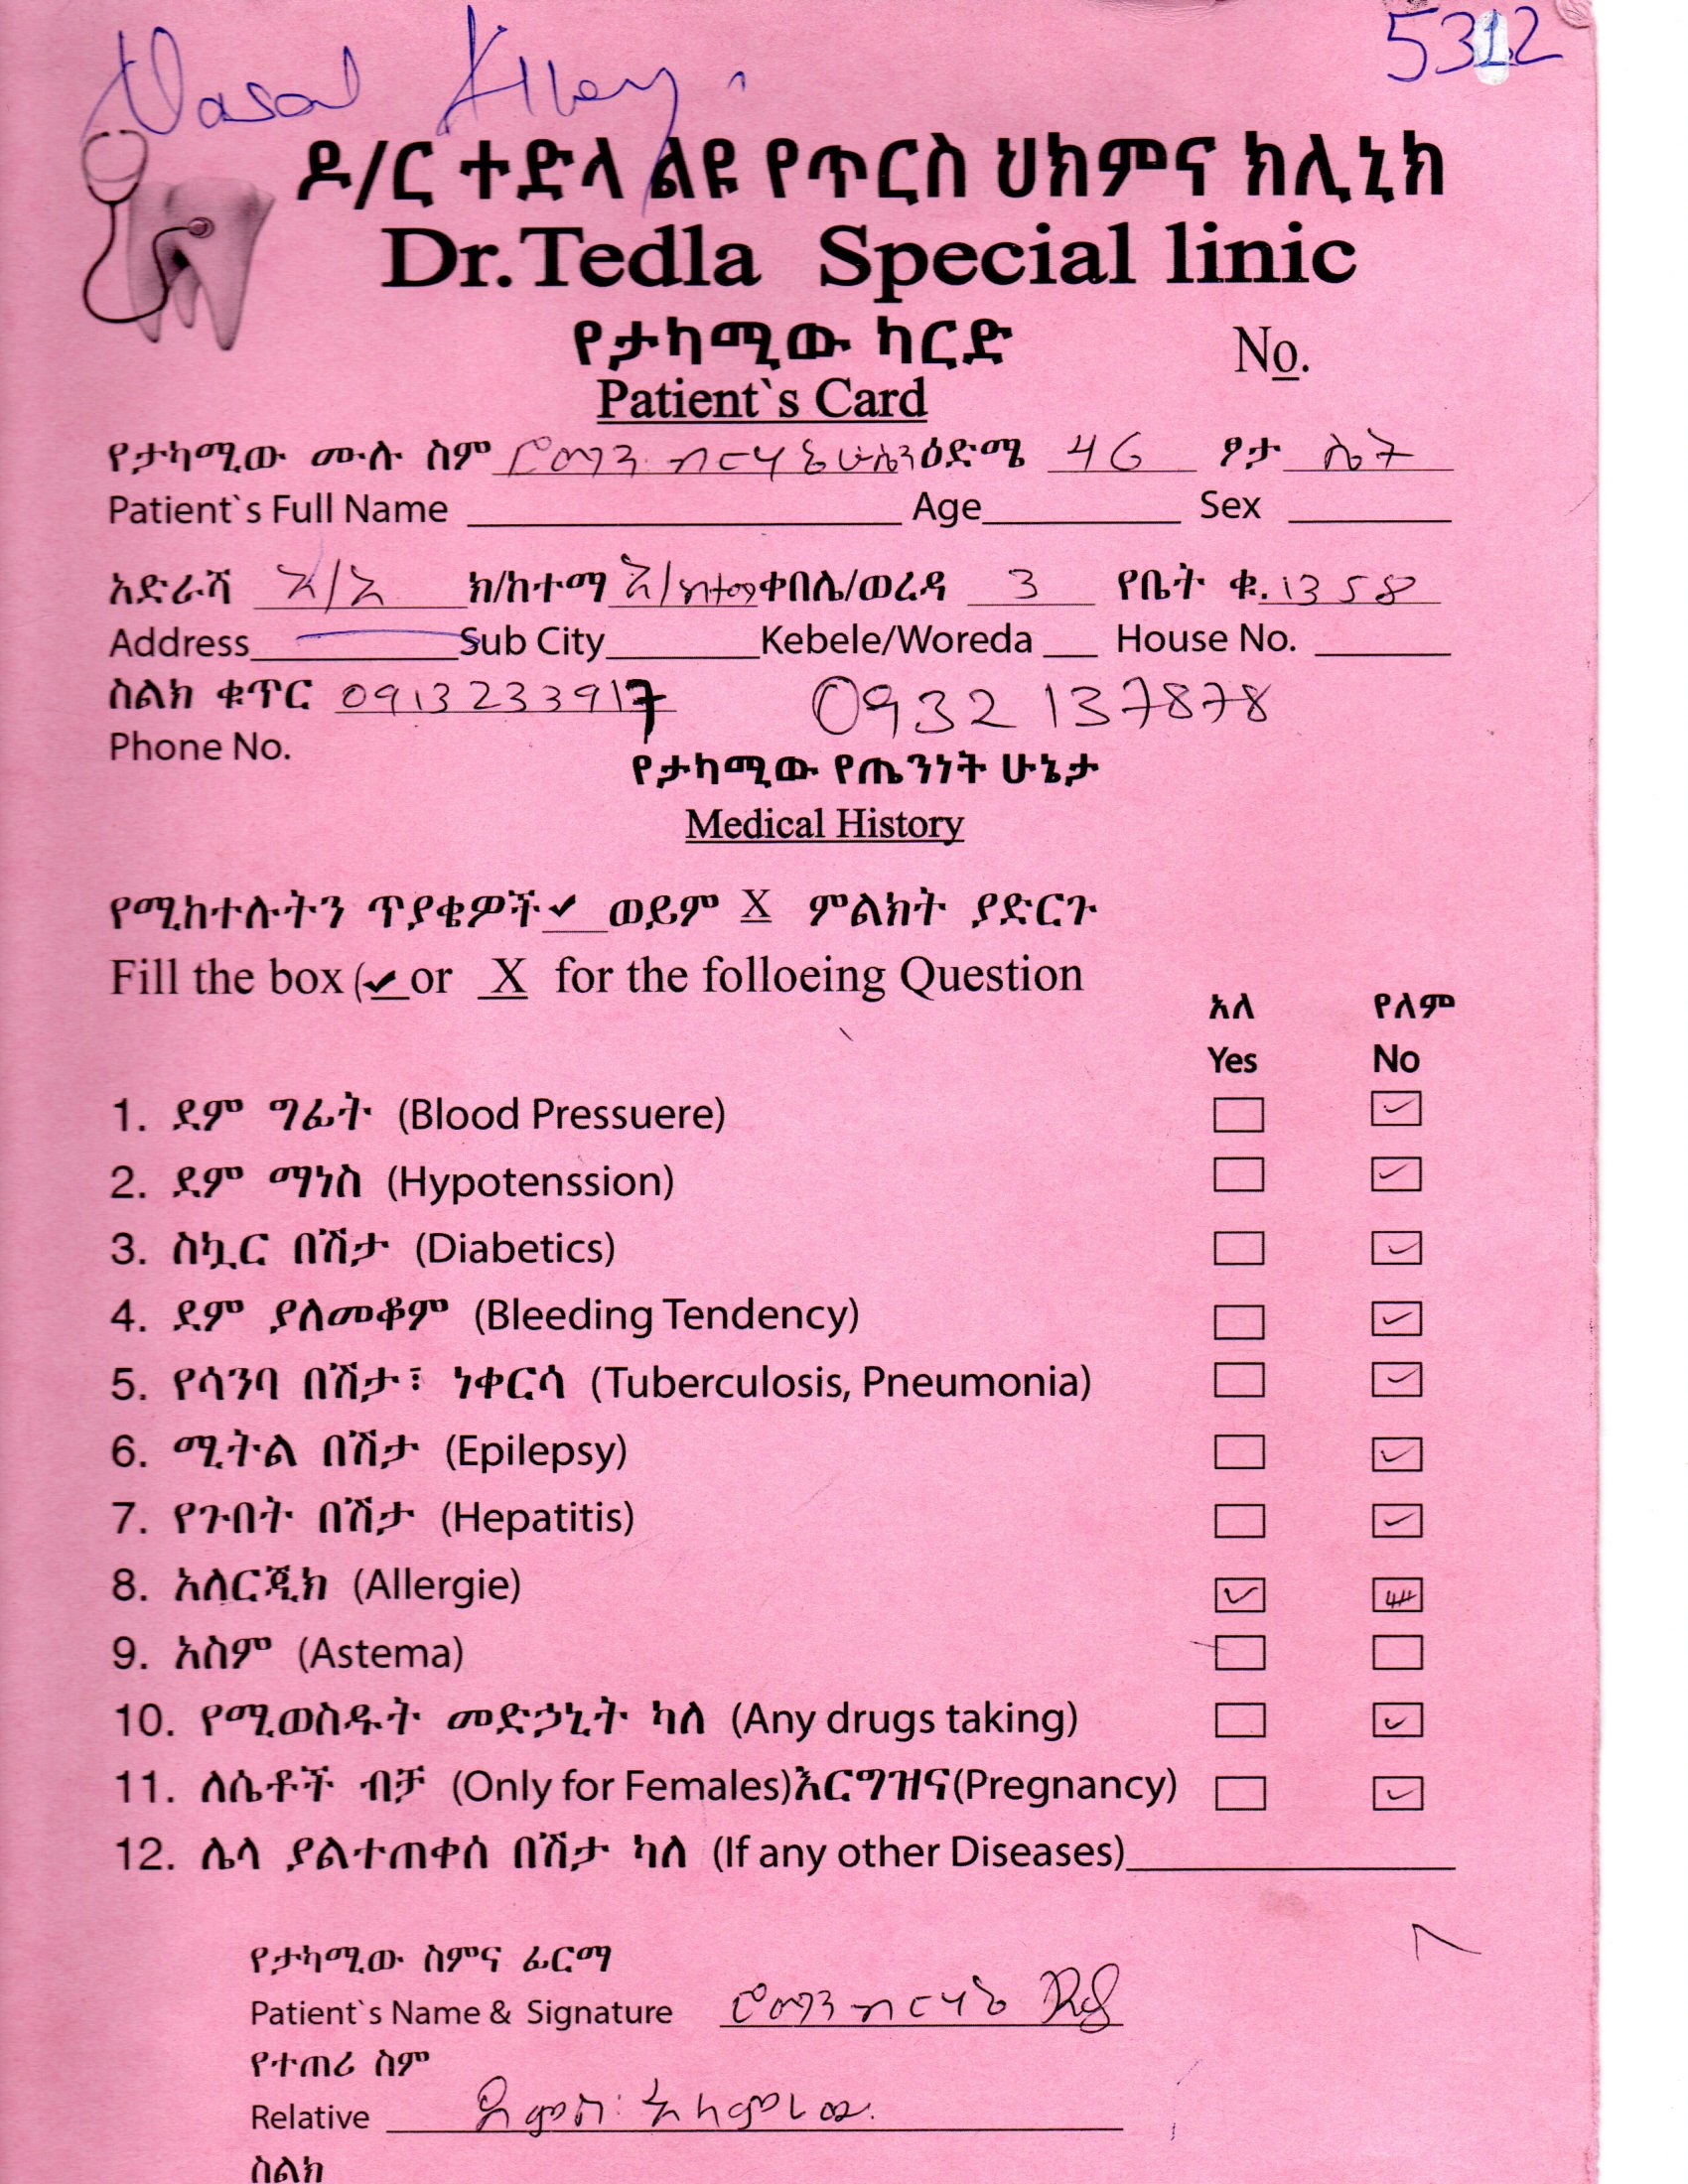 5312
Nasal Allergy.
ዶ/ር ተድላ ልዩ የጥርስ ህክምና ክሊኒክ
Dr.Tedla Special linic
የታካሚው ካርድ
No.
Patient`s Card
የታካሚው ሙሉ ስም ሮማን ብርሃኔ ሁሴን ዕድሜ 46 ፆታ ሴት
Patient`s Full Name Age Sex
አድራሻ አ/አ ክ/ከተማ አ/ከተማ ቀበሌ/ወረዳ 3 የቤት ቁ. 1358
Address Sub City Kebele/Woreda House No.
ስልክ ቁጥር 0913233917 0932137878
Phone No.
የታካሚው የጤንነት ሁኔታ
Medical History
የሚከተሉትን ጥያቄዎች ✔ ወይም X ምልክት ያድርጉ
Fill the box (✔ or X for the folloeing Question
አለ የለም
Yes No
1. ደም ግፊት (Blood Pressuere) ✓
2. ደም ማነስ (Hypotenssion) ✓
3. ስኳር በሽታ (Diabetics) ✓
4. ደም ያለመቆም (Bleeding Tendency) ✓
5. የሳንባ በሽታ፣ ነቀርሳ (Tuberculosis, Pneumonia) ✓
6. ሚትል በሽታ (Epilepsy) ✓
7. የጉበት በሽታ (Hepatitis) ✓
8. አለርጂክ (Allergie) ✓
9. አስም (Astema)
10. የሚወስዱት መድኃኒት ካለ (Any drugs taking) ✓
11. ለሴቶች ብቻ (Only for Females)እርግዝና(Pregnancy) ✓
12. ሌላ ያልተጠቀሰ በሽታ ካለ (If any other Diseases)
የታካሚው ስምና ፊርማ
Patient`s Name & Signature ሮማን ብርሃኔ
የተጠሪ ስም
Relative
ስልክ